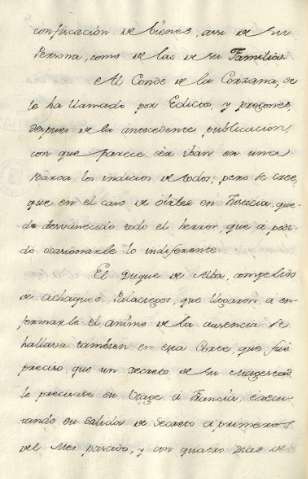 confiscacion de bienes, assi de su
Persona, como de las de su Familia.
El Conde de la Corzana, se
le ha llamado por Edictos, y pregones,
despues de la antecedente publicacion,
con que parece iban en una
Barca los indicios de todos; pero se cree,
que en el caso de estar en Francia, que-
da desvanecido todo el horror, que a po-
do ocasionarle lo indiferente.
El Duque de Alba,
de achaques, que llegaron a en-
fermarle el animo de la ausencia se
hallava tambien en essa Corte, que fue
preciso que un Decreto de su Magestad
le precisase su viage a Francia, execu-
tando su salida de secreto a primeros
del Mes passado, y con quatro dias de